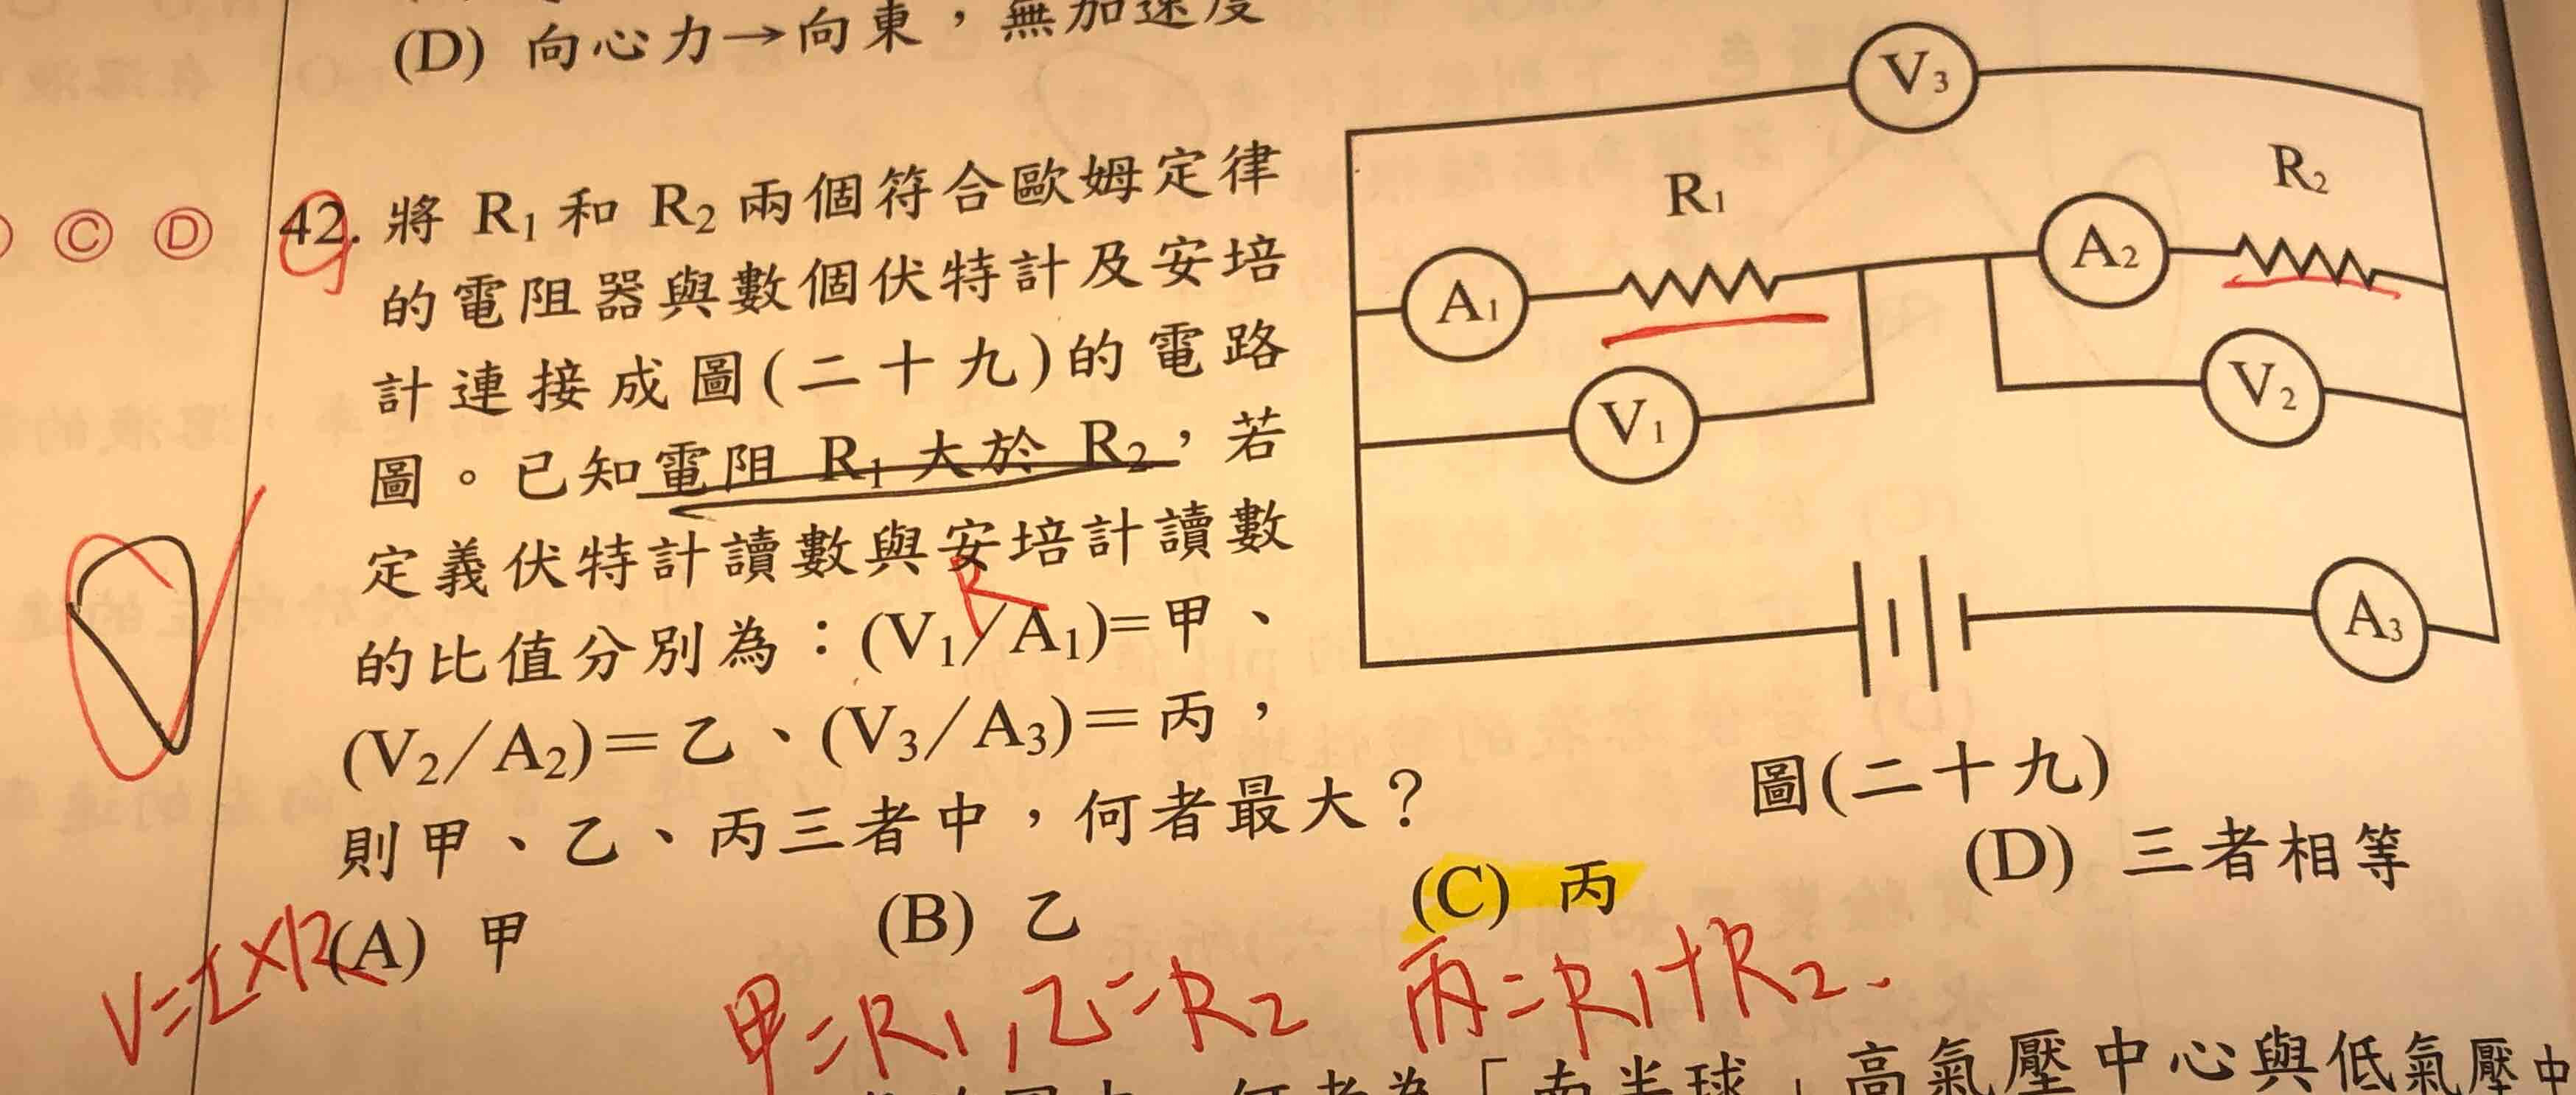 (D) 向心力→向東，無加速度
Ⓒ Ⓓ
42. 將 R₁ 和 R₂ 兩個符合歐姆定律
的電阻器與數個伏特計及安培
計連接成圖(二十九)的電路
圖。已知電阻 R₁ 大於 R₂，若
定義伏特計讀數與安培計讀數
的比值分別為：(V₁/A₁)=甲、
(V₂/A₂)=乙、(V₃/A₃)=丙，
則甲、乙、丙三者中，何者最大？
(A) 甲 (B) 乙 (C) 丙 (D) 三者相等
V₃
R₁
R₂
A₁
A₂
V₁
V₂
A₃
圖(二十九)
R
V=I×R
甲=R₁，乙=R₂ 丙=R₁+R₂.
「南半球」高氣壓中心與低氣壓中